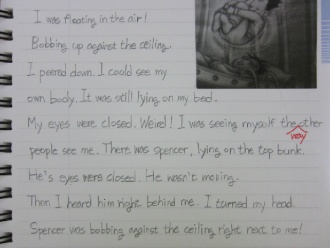 I was floating in the air!
Bobbing up against the ceiling.
I peered down. I could see my
own body. It was still lying on my bed.
My eyes were closed. Weird! I was seeing myself the way other
people see me. There was spencer, lying on the top bunk.
He's eyes were closed. He wasn't moving.
Then I heard him right behind me. I turned my head.
Spencer was bobbing against the ceiling right next to me!